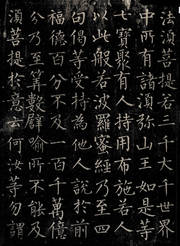 法湏菩提若三千大千世界
中所有諸湏弥山王如是等
七寶聚有人持用布施若人
以此般若波羅蜜經乃至四
句偈等受持為他人說於前
福德百分不及一百千萬億
分乃至筭數譬喻所不能及
湏菩提於意云何汝等勿謂